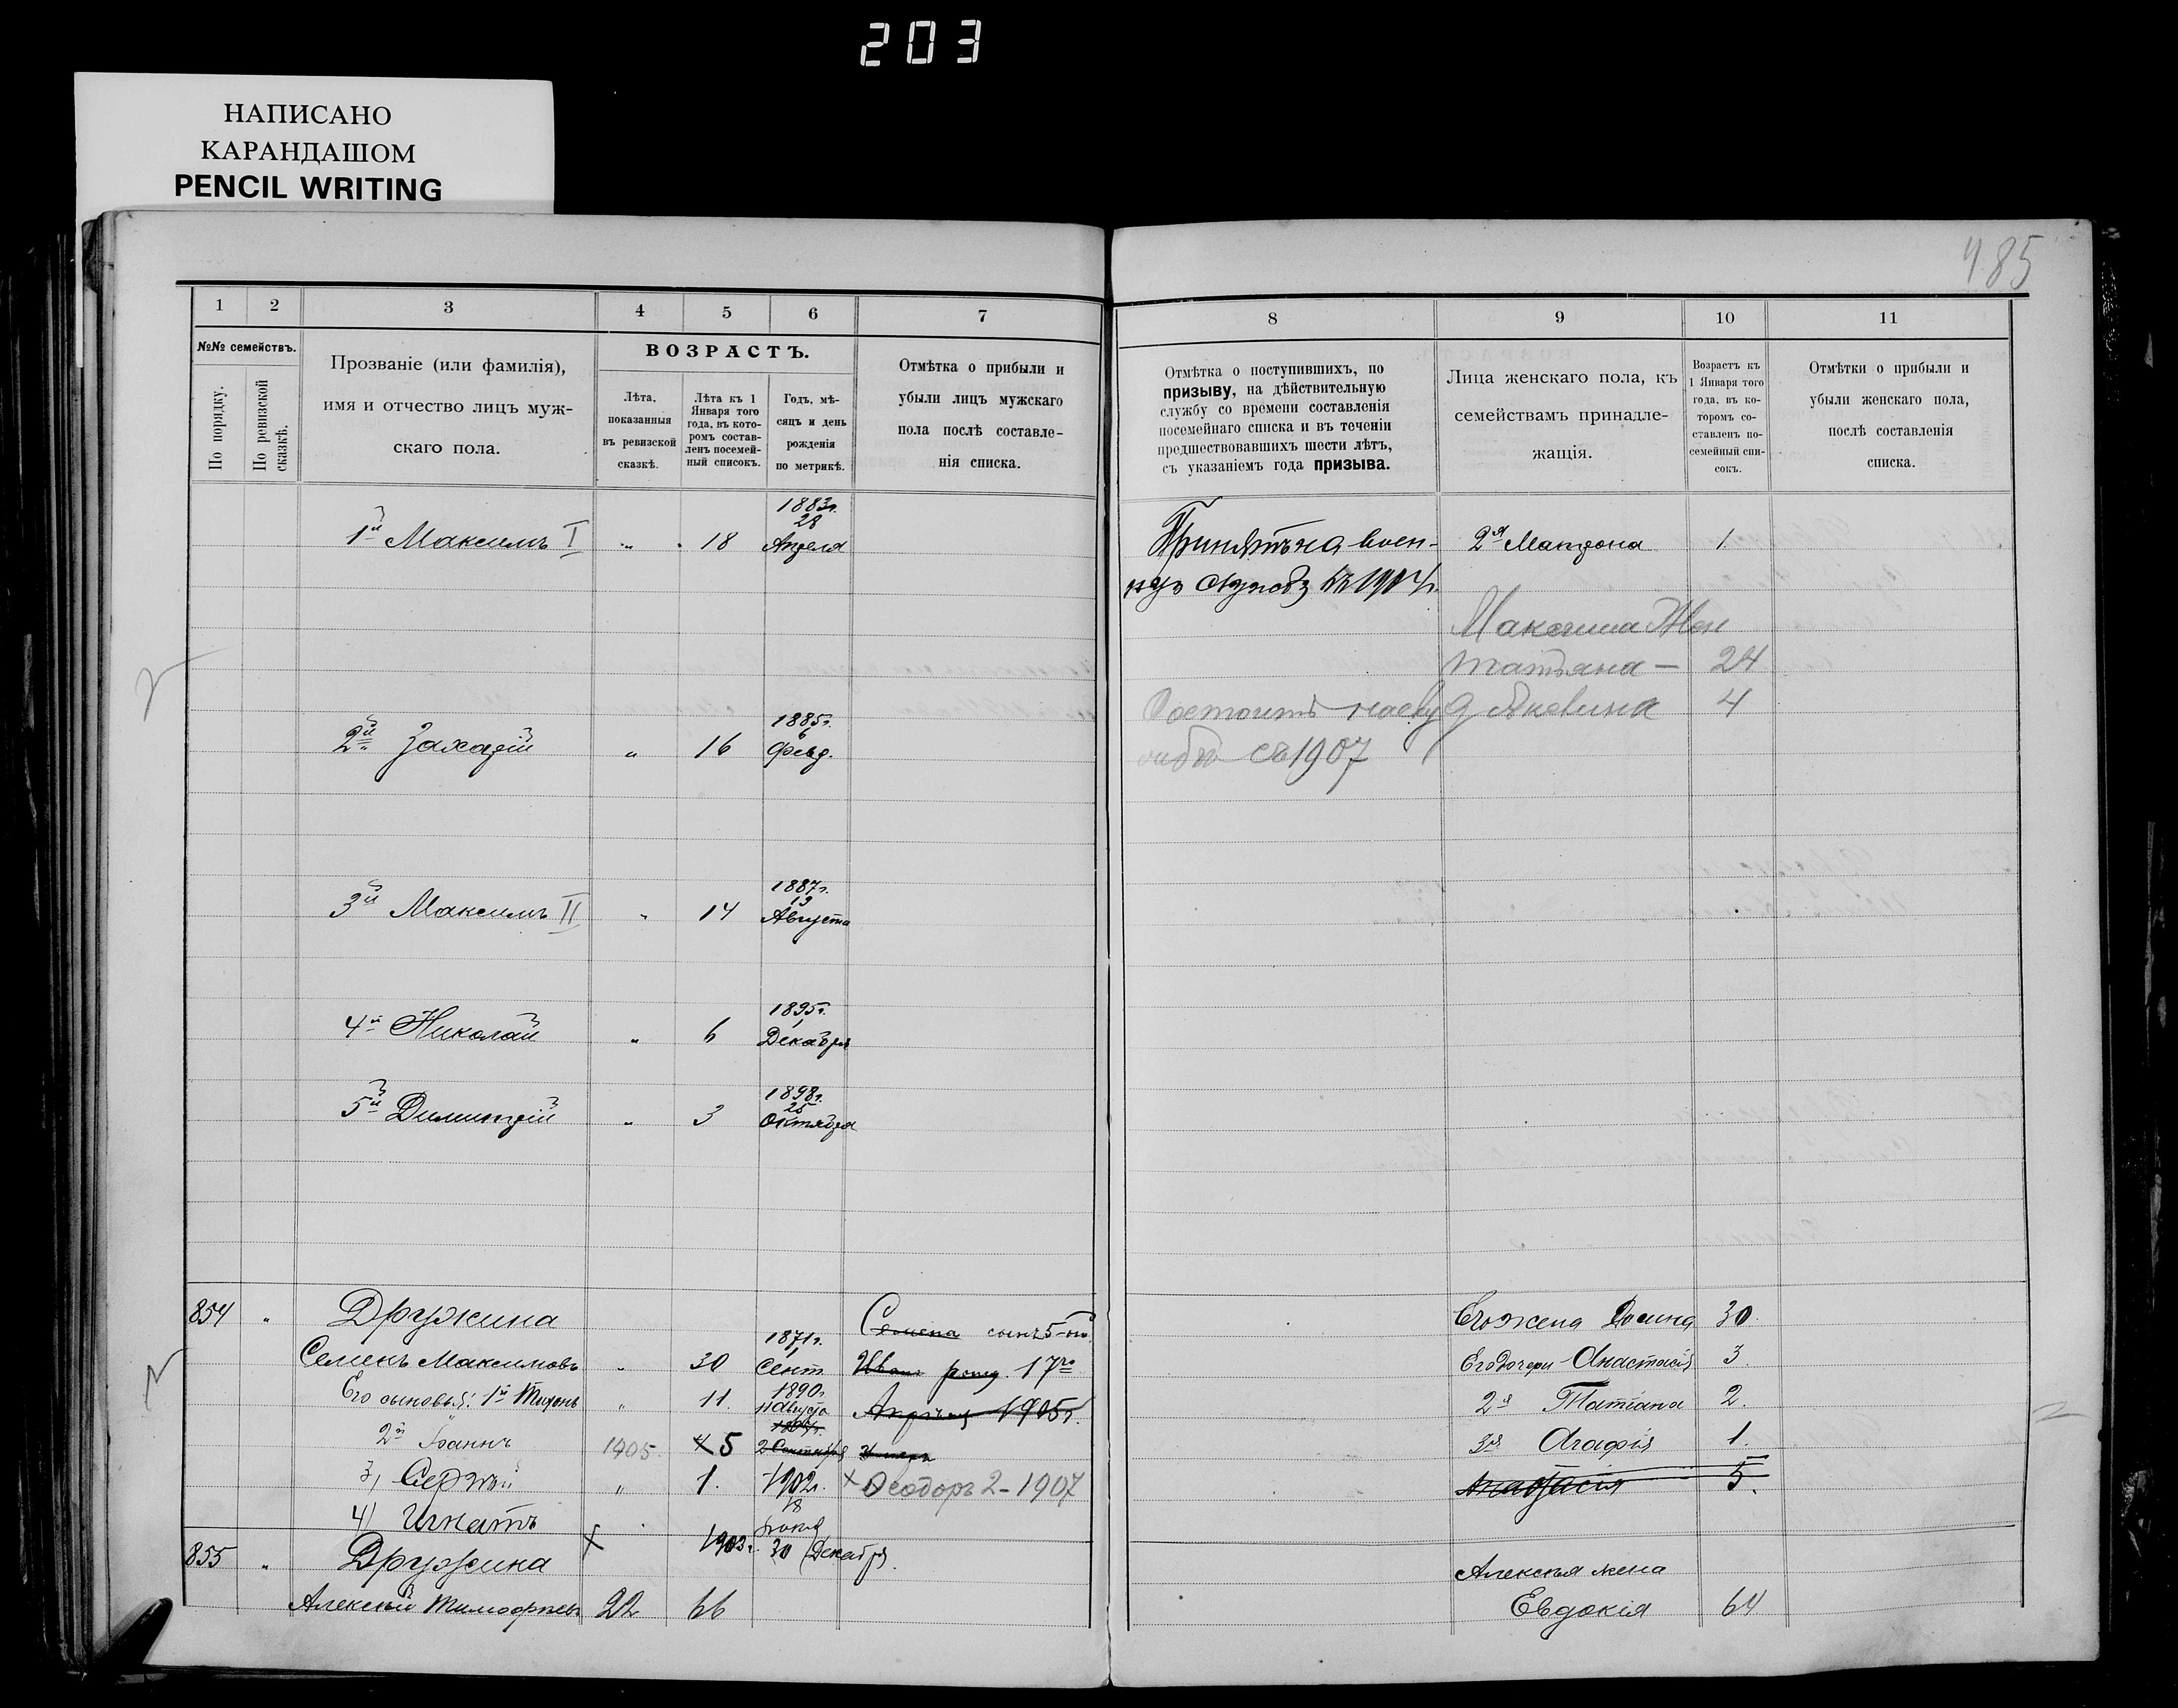 203
НАПИСАНО
КАРАНДАШОМ
PENCIL WRITING
485
1 2 3 4 5 6 7
№№ семействъ.
По порядку.
По ревизской сказкѣ.
Прозваніе (или фамилія),
имя и отчество лицъ муж-
скаго пола.
ВОЗРАСТЪ.
Лѣта,
показанныя
въ ревизской
сказкѣ.
Лѣта къ 1
Января того
года, въ кото-
ромъ состав-
ленъ посемей-
ный списокъ.
Годъ, мѣ-
сяцъ и день
рожденія
по метрикѣ.
Отмѣтка о прибыли и
убыли лицъ мужскаго
пола послѣ составле-
нія списка.
8 9 10 11
Отмѣтка о поступившихъ, по
призыву, на дѣйствительную
службу со времени составленія
посемейнаго списка и въ теченіи
предшествовавшихъ шести лѣтъ,
съ указаніемъ года призыва.
Лица женскаго пола, къ
семействамъ принадле-
жащія.
Возрастъ къ
1 Января того
года, въ ко-
торомъ со-
ставленъ по-
семейный спи-
сокъ.
Отмѣтки о прибыли и
убыли женскаго пола,
послѣ составленія
списка.
1883г.
28
1й Максимъ I " 18 Апреля
Принятъ на воен-
2я Матрона 1.
ную службу въ 1904г.
Максима Жен
татьяна - 24
Состоитъ 4
съ 1907
1885г.
6
2й Захарій " 16 Февр.
1887г.
13
3й Максимъ II " 14 Августа
1895г.
1
4й Николай " 6 Декабря
1898г.
25
5й Димитрій " 3 Октября
854 " Дружина
Семена сынъ 5-й
Его жена 30.
1871г.
1
Семенъ Максимовъ " 30 Сент.
Иванъ рожд. 17го
Его дочери Анастасія 3.
1890г.
Его сыновья: 1й Тихонъ " 11. 11 Августа
Апрѣля 1905г.
2я Татіана 2.
2й Іоаннъ 1905. 4 5 2 Сентября
умеръ
3я Агафія 1.
3) Сергѣй " 1. 1902г.
× Ѳеодоръ 2-1907
Анастасія 5.
18
4) Игнатъ
1903г. 30 Декабря.
855 " Дружина
Алексѣя жена
Алексѣй Тимофѣевъ 22 66
Евдокія 64